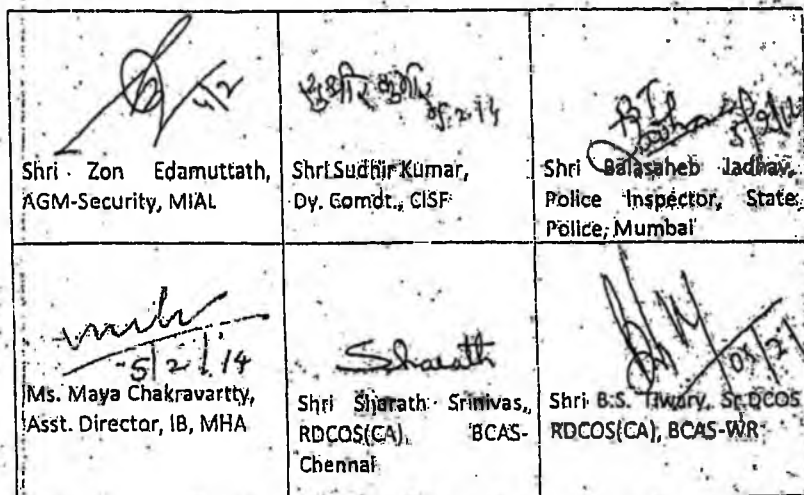 5/2
Shri Zon Edamuttath,
AGM-Security, MIAL
सुधीर कुमार
05.2.14
Shri Sudhir Kumar,
Dy. Comdt., CISF
Shri Balasaheb Jadhav,
Police Inspector, State
Police, Mumbai
5/2/14
Ms. Maya Chakravartty,
Asst. Director, IB, MHA
Sharath
Shri Sharath Srinivas,
RDCOS(CA), BCAS-
Chennai
Shri B.S. Tiwary, Sr.DCOS
RDCOS(CA), BCAS-WR